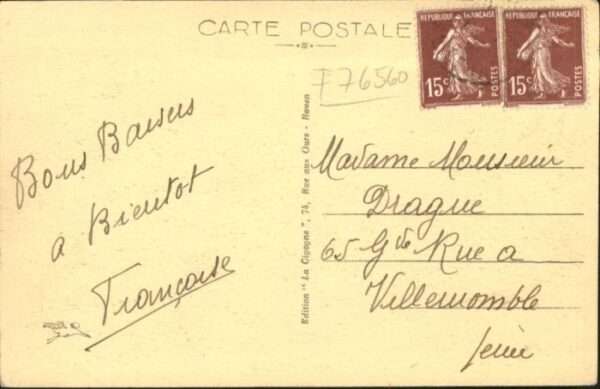 CARTE POSTALE
REPUBLIQUE FRANÇAISE
15c POSTES
REPUBLIQUE FRANÇAISE
15c POSTES
F76560
Bons Baisers
a Bientot
Françoise
Edition " La Cigogne ", 74, Rue aux Ours - Rouen
Madame Monsieur
Drague
65 Gde Rue a
Villemomble
Seine